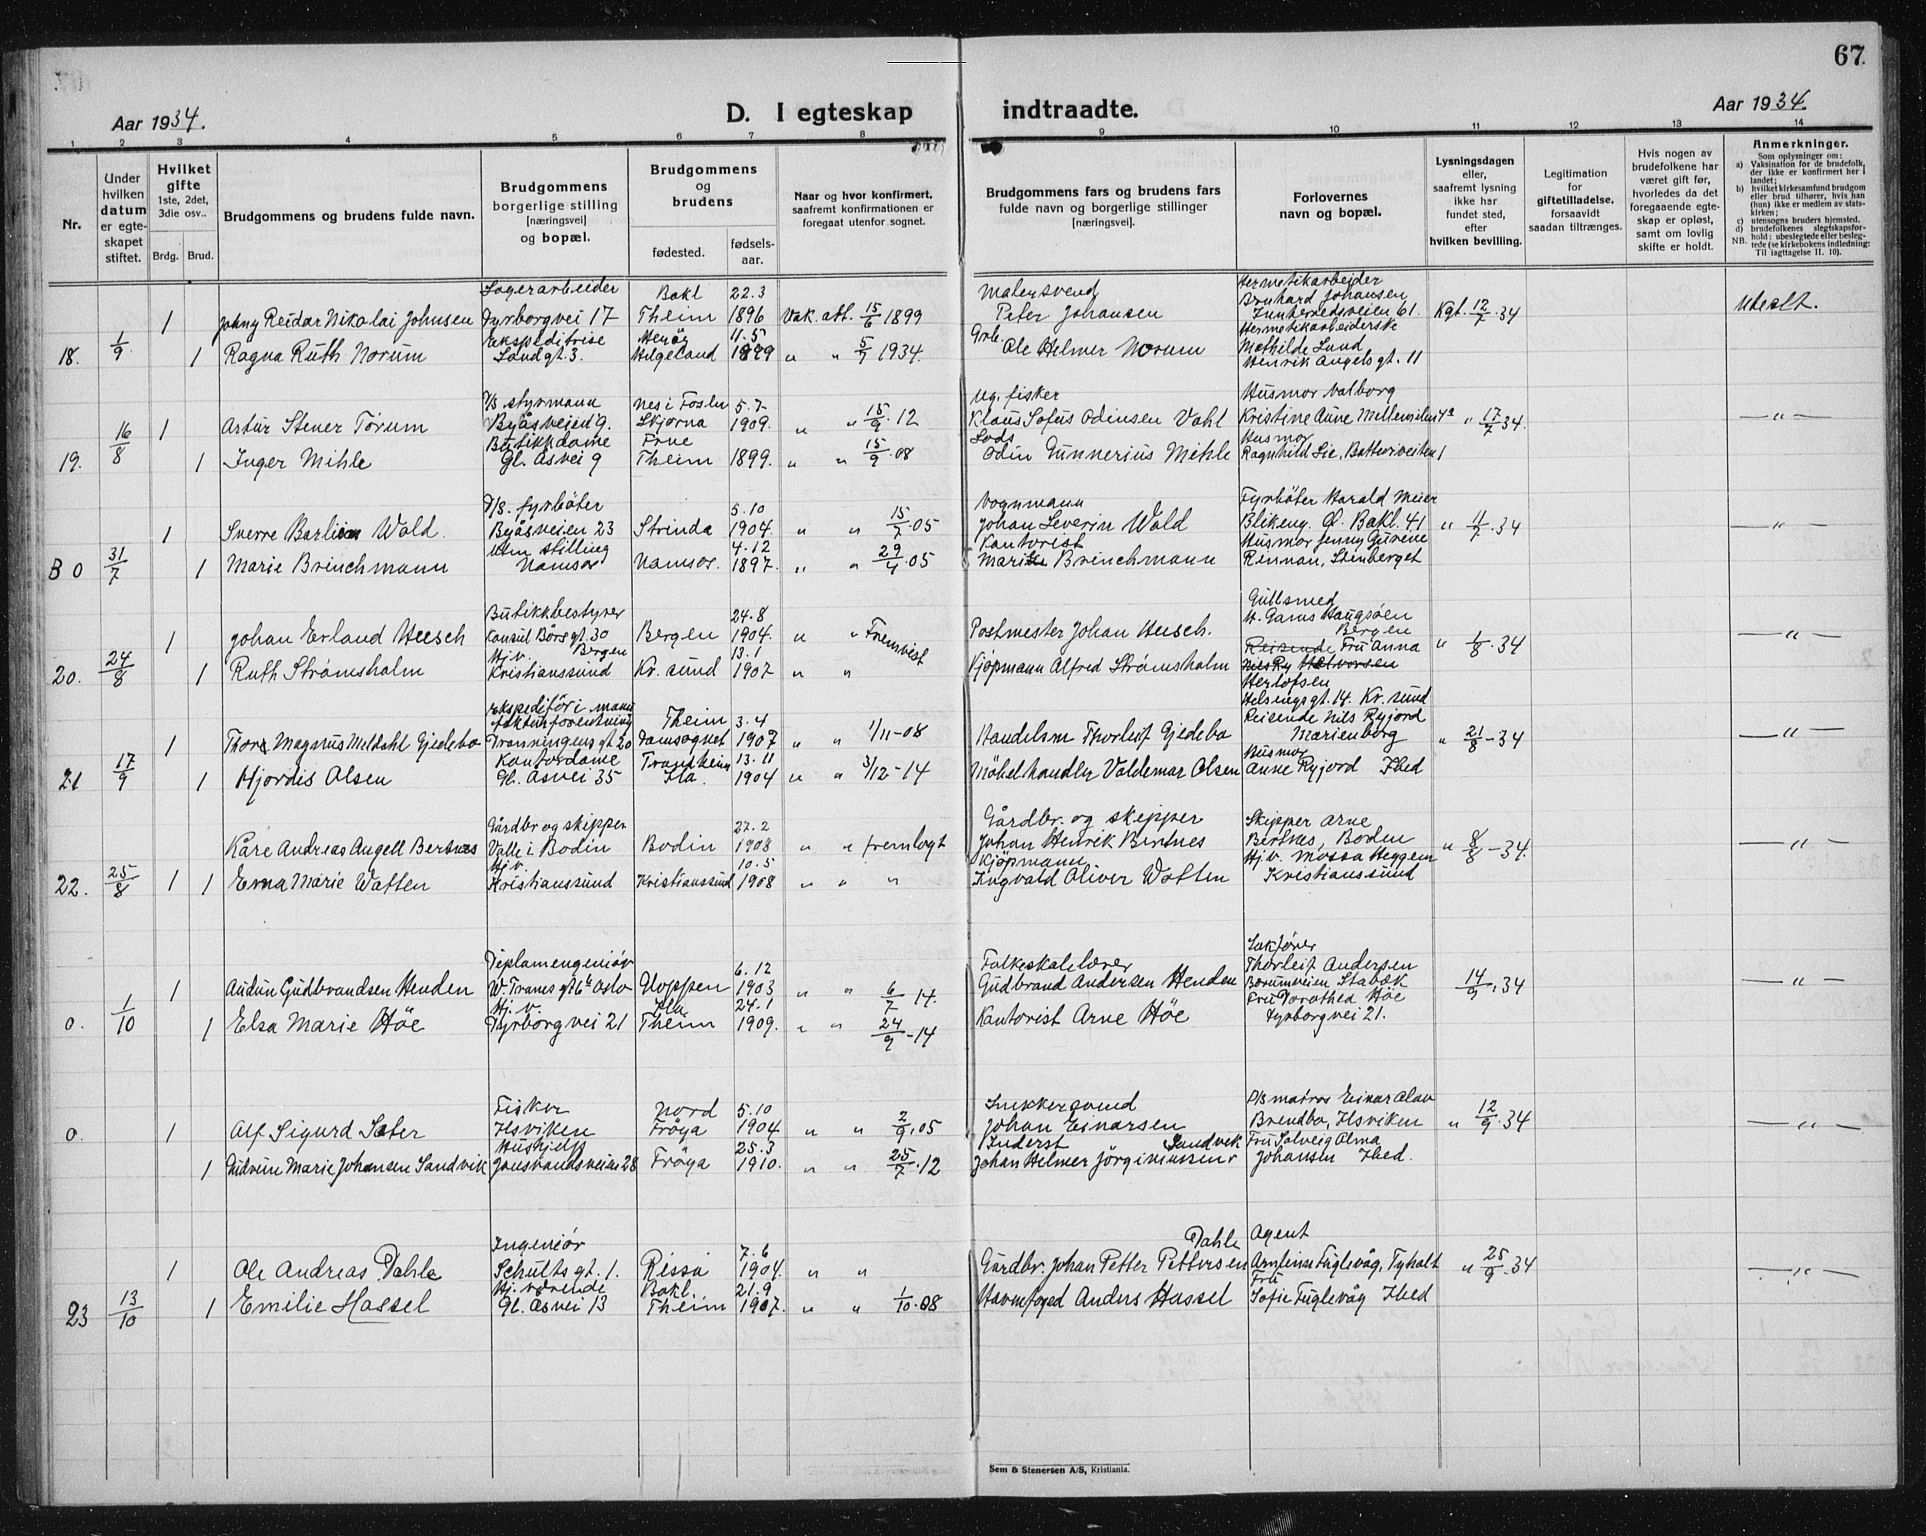 67.
Aar 1934.
D. I egteskap
indtraadte.
Aar 1934.
1 2 3 4 5 6 7 8 9 10 11 12 13 14
Nr.
Under hvilken datum er egteskapet stiftet.
Hvilket gifte 1ste, 2det, 3die osv..
Brdg. Brud.
Brudgommens og brudens fulde navn.
Brudgommens borgerlige stilling [næringsvei] og bopæl.
Brudgommens og brudens
fødested. fødsels-aar.
Naar og hvor konfirmert, saafremt konfirmationen er foregaat utenfor sognet.
Brudgommens fars og brudens fars fulde navn og borgerlige stillinger [næringsvei].
Forlovernes navn og bopæl.
Lysningsdagen eller, saafremt lysning ikke har fundet sted, efter hvilken bevilling.
Legitimation for giftetilladelse, forsaavidt saadan tiltrænges.
Hvis nogen av brudefolkene har været gift før, hvorledes da det foregaaende egteskap er opløst, samt om lovlig skifte er holdt.
Anmerkninger.
Som oplysninger om:
a) Vaksination for de brudefolk, der ikke er konfirmert her i landet;
b) hvilket kirkesamfund brudgom eller brud tilhører, hvis han (hun) ikke er medlem av statskirken;
c) utensogns bruders hjemsted.
d) brudefolkenes slegtskapsforhold: ubeslegtede eller beslegtede (se kirkebokens indledning:
NB. Til iagttagelse II. 10).
Lagerarbeider Bakl 22.3 Malersvend Hermetikarbeider
Bernhard Johansen
1 Johny Reidar Nikolai Johnsen Fyrborgvei 17 Theim 1896 Vak. att. 15/6 1899 Peter Johansen Innherredsveien 61. Kgl. 12/7 34 Ubeslt.
Ekspeditrise Herøy 11.5 Hermetikarbeiderske
18. 1/9 1 Ragna Ruth Norum Sandgt. 3. Helgeland 1899 " " 5/9 1934. Ole Helmer Norum Mathilde Lund
Henrik Angels gt. 11
D/S styrmann Nes i Fosen 5.7 Ug. fisker Husmor Valborg
1 Artur Stener Tørum Byåsveien 9. 1909. " " 15/9 12 Klaus Sofus Odinsen Vahl Kristine Aune " 17/7 34. "
Butikkdame Lods Husmor
19. 16/8 1 Inger Mihle Gl. Åsvei 9 Theim 1899. " " 15/9 08 Odin Gunnerius Mihle Ragnhild Lie,
D/S. fyrbøter 5.10 Vognmann Fyrbøter Harald Meier
1 Sverre Wold. Byåsveien 23 Strinda 1904. " " 15/7 05 Johan Severin Wold Blikeng. Ø. Bakl. 41 " 11/7 34 "
Uten stilling 4.12 Kantorist Husmor Jenny
B 0 31/7 1 Marie Brinchmann Namsos Namsos. 1897. " " 29/4 05 Brinchmann Rennan, Stenberget
Butikkbestyrer 24.8 Gullsmed
1 Johan Erland Heesch Konsul Børs gt. 30 Bergen 1904. " " Fremvist Postmester Johan Heesch. Bergen " 1/8 34 "
Hj. v. Bergen 13.1 Reisende Fru Anna
20. 24/8 1 Ruth Strømsholm Kristianssund Kr. sund 1907 " " Kjøpmann Alfred Strømsholm Herlofsen
Helsingsgt. 14. Kr. sund
Theim 3.4 Reisende Nils Ryjord
1 Thor Magnus Meldahl Gjedebo Domsognet 1907 " " 1/11-08 Handelsm Thorleif Gjedebo Marienborg " 21/8 - 34 "
Kontordame Trondheim 13.11 Husmor
21 17/9 1 Hjørdis Olsen Gl. Åsvei 35 Ila. 1904 " " 3/12-14 Møbelhandler Valdemar Olsen Anne Ryjord Ibed
Gårdbr og skipper 27.2 Gårdbr. og skipper Skipper Arne
Kåre Andreas Angell Bertnes Valle i Bodin Bodin 1908 " " fremlagt Johan Henrik Bertnes Bertnes, Bodin " 8/8 - 34. "
Hj. v. 10.5 Kjøpmann Hj. v. Mossa Heggem
22. 25/8 1 1 Erna Marie Watten Kristianssund Kristianssund 1908 " " " Ingvald Oliver Watten Kristianssund
Diplomengeniør 6.12 Folkeskolelærer Sakfører
Thorleif Andersen
1 Audun Gudbrandsen Henden W. Tranes gt 6b Oslo Gloppen 1903 " " 6/7 14. Gudbrand Andersen Henden Borumveien Stabæk 14/9. 34 "
Hj. v. Ila 24.1 Fru Dorothea Høe
0. 1/10 1 Elsa Marie Høe Fyrborgvei 21 Theim 1909. " " 24/9 - 14 Kantorist Arne Høe Fyrborgvei 21.
Fisker Nord 5.10 Snekkersvend D/S matros Einar Olav
0. 1 Alf Sigurd Sæter Ilsviken Frøya 1904 " " 2/9. 05 Johan Einarsen Brendbo, Ilsviken " 12/9 34 "
Hushjelp 25.3 Inderst Sandvik Fru Solveig Alma
1 Gudrun Marie Johansen Sandvik Jonsvandsveien 28 Frøya 1910. " " 25/7 12 Johan Helmer Johansen Ibed.
Ingeniør 7.6 Dahle Agent
1 Ole Andreas Dahle Schultz gt. 1. Rissa 1904. " " Gårdbr. Johan Petter Pettersen Fuglevåg, Tyholt " 25/9 34 "
Hj. værende Bakl. 21.9 Fru
23 13/10 1 Emilie Hassel Gl. Åsvei 13 Theim 1907. " " 1/10. 08 Havnefoged Anders Hassel Sofie Fuglevåg Ibed
Sem & Stenersen A/S, Kristiania.